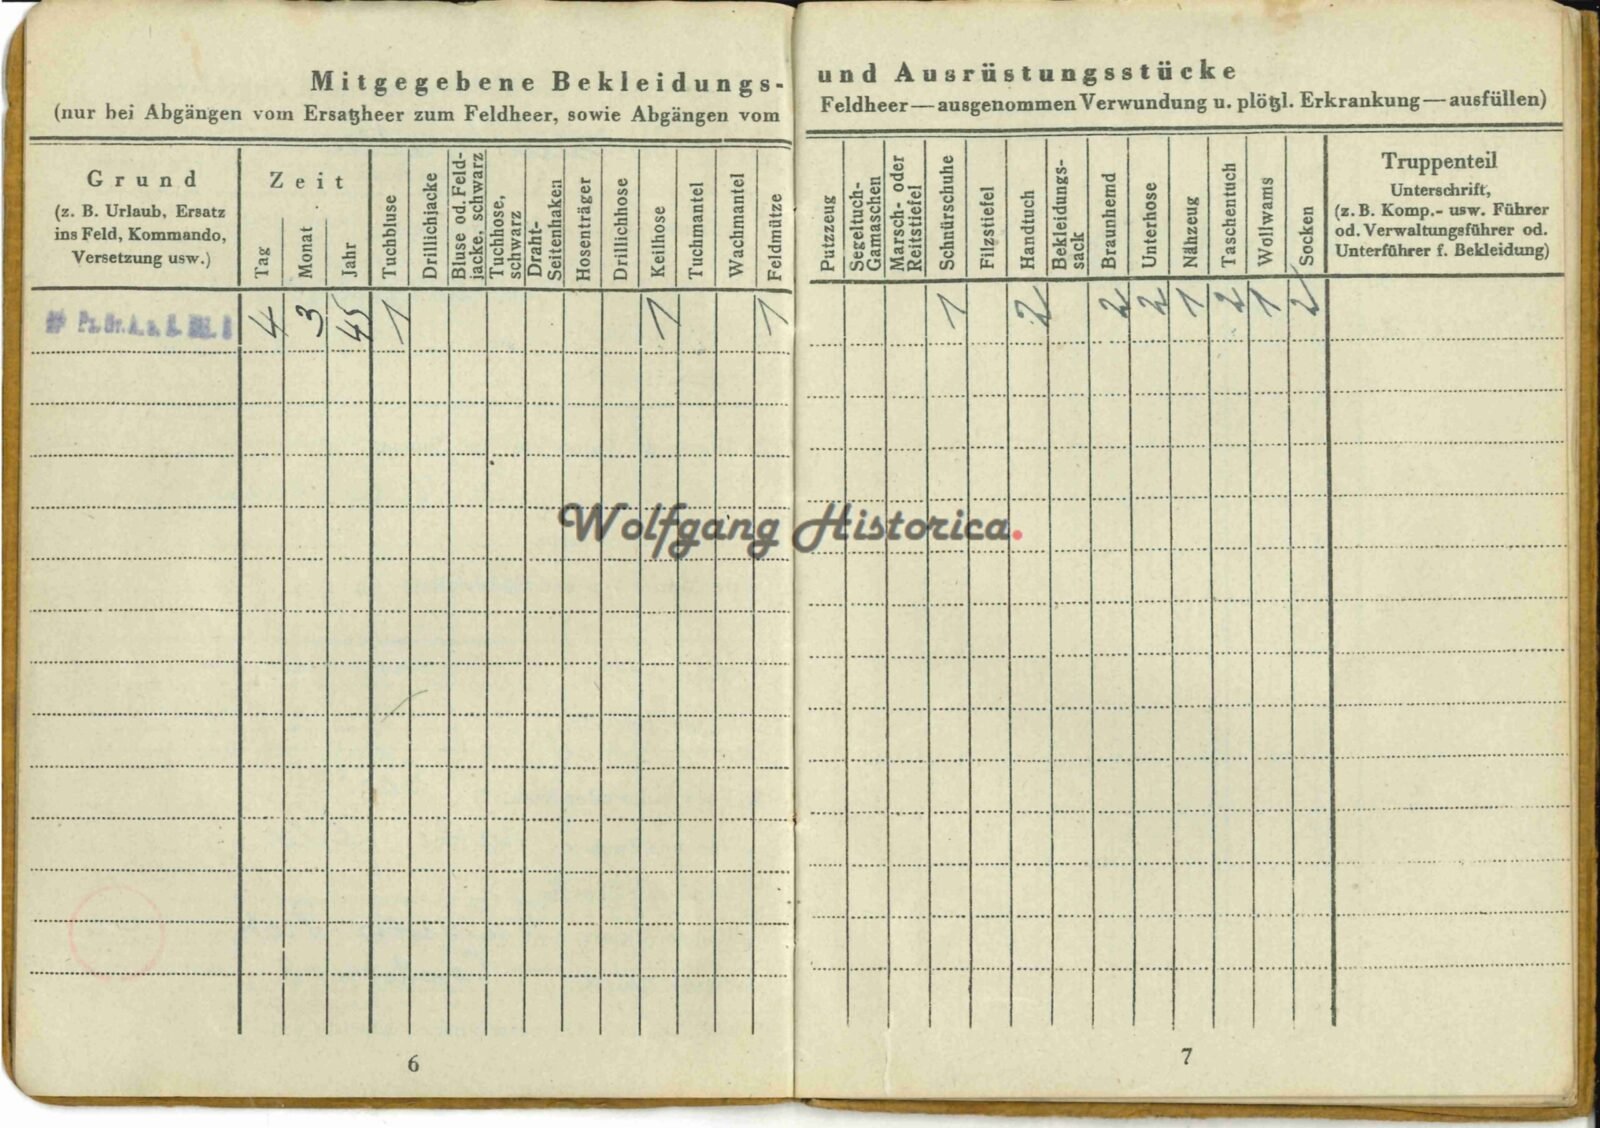 Mitgegebene Bekleidungs-
(nur bei Abgängen vom Ersatzheer zum Feldheer, sowie Abgängen vom
Grund
(z. B. Urlaub, Ersatz
ins Feld, Kommando,
Versetzung usw.)
Zeit
Tag
Monat
Jahr
Tuchbluse
Drillichjacke
Bluse od. Feld-
jacke, schwarz
Tuchhose,
schwarz
Draht-
Seitenhaken
Hosenträger
Drillichhose
Keilhose
Tuchmantel
Wachmantel
Feldmütze
4 3 45 1 1 1
6
und Ausrüstungsstücke
Feldheer — ausgenommen Verwundung u. plötzl. Erkrankung — ausfüllen)
Putzzeug
Segeltuch-
Gamaschen
Marsch- oder
Reitstiefel
Schnürschuhe
Filzstiefel
Handtuch
Bekleidungs-
sack
Braunhemd
Unterhose
Nähzeug
Taschentuch
Wollwams
Socken
Truppenteil
Unterschrift,
(z. B. Komp.- usw. Führer
od. Verwaltungsführer od.
Unterführer f. Bekleidung)
1 2 2 2 1 2 1 2
7
Wolfgang Historica.